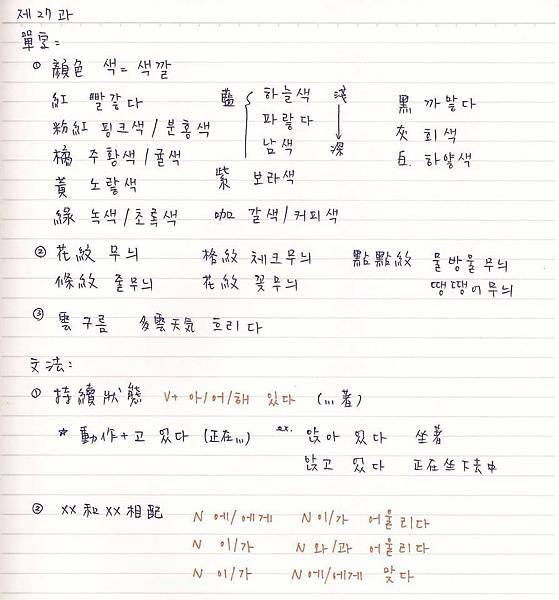 제 27 과
單字:
① 顏色 색 = 색깔
紅 빨갛다 藍 하늘색 淺 黑 까맣다
粉紅 핑크색 / 분홍색 파랗다 灰 회색
橘 주황색 / 귤색 남색 深 白. 하양색
黃 노랑색 紫 보라색
綠 녹색 / 초록색 咖 갈색 / 커피색
② 花紋 무늬 格紋 체크무늬 點點紋 물방울무늬
條紋 줄무늬 花紋 꽃무늬 땡땡이무늬
③ 雲 구름 多雲天氣 흐리다
文法:
① 持續狀態 V+ 아/어/해 있다 (...著)
* 動作 + 고 있다 (正在...) ex. 앉아 있다 坐著
앉고 있다 正在坐下去中
② XX 和 XX 相配 N 에/에게 N 이/가 어울리다
N 이/가 N 와/과 어울리다
N 이/가 N 에/에게 맞다